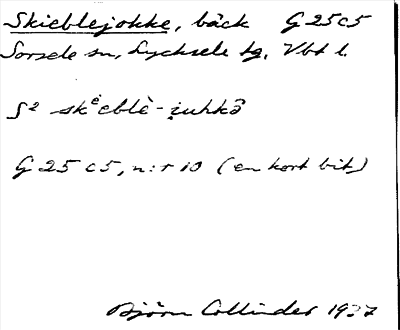 Skieblejokke, bäck G 25 c5
Sorsele sn, Lycksele tg. Vbt l.
S² skᵉ̀eblè-i̯uhkə̂
G 25 c5, n:r 10 (en kort bit)
Björn Collinder 1937